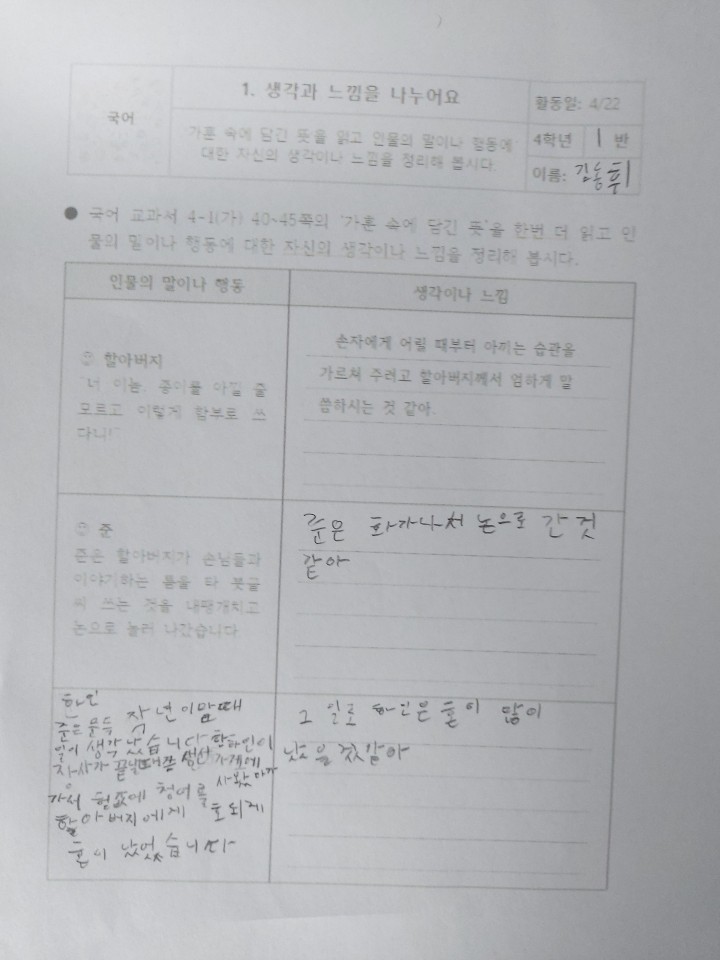 국어
1. 생각과 느낌을 나누어요
'가훈 속에 담긴 뜻'을 읽고 인물의 말이나 행동에
대한 자신의 생각이나 느낌을 정리해 봅시다.
활동일: 4/22
4학년 1 반
이름: 김동휘
● 국어 교과서 4-1(가) 40~45쪽의 '가훈 속에 담긴 뜻'을 한번 더 읽고 인
물의 말이나 행동에 대한 자신의 생각이나 느낌을 정리해 봅시다.
인물의 말이나 행동
생각이나 느낌
할아버지
"너 이놈, 종이를 아낄 줄
모르고 이렇게 함부로 쓰
다니!"
손자에게 어릴 때부터 아끼는 습관을
가르쳐 주려고 할아버지께서 엄하게 말
씀하시는 것 같아.
준
준은 할아버지가 손님들과
이야기하는 틈을 타 붓글
씨 쓰는 것을 내팽개치고
논으로 놀러 나갔습니다.
준은 화가나서 논으로 간 것
같아
하인
준은 문득 작년이맘때
일이 생각 났습니다 하인이
가서 헐값에 청어를 사왔다가
할아버지에게 호되게
혼이 났었습니다
그 일로 하인은 혼이 많이
났을 것같아